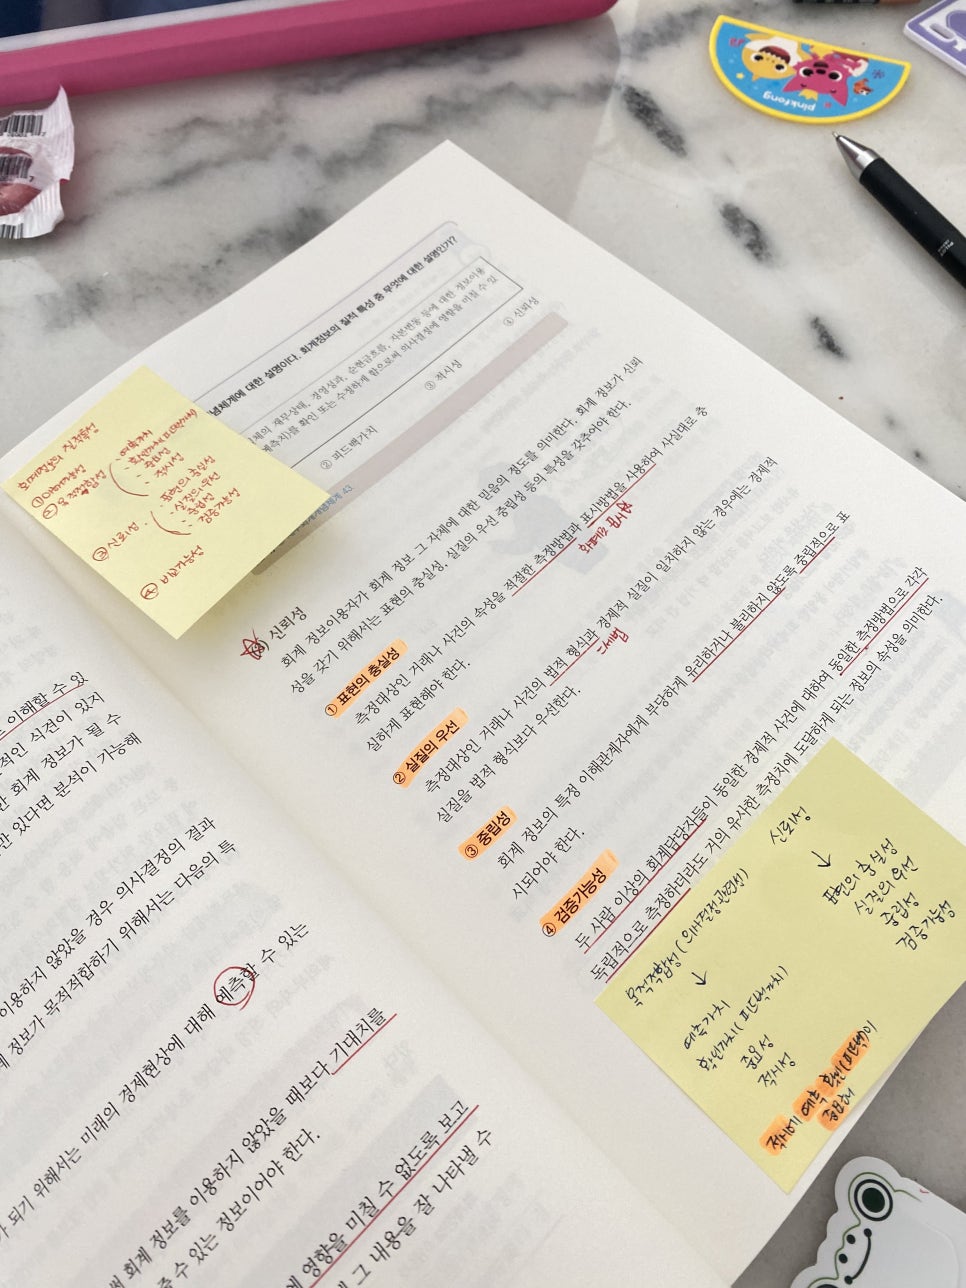 pinkfong
념체계에 대한 설명이다. 회계정보의 질적 특성 중 무엇에 대한 설명인가?
체의 재무상태, 경영성과, 순현금흐름, 자본변동 등에 대한 정보이용
예측치)를 확인 또는 수정하게 함으로써 의사결정에 영향을 미칠 수 있
② 피드백가치
③ 적시성
④ 신뢰성
43.
질적특성
① 이해가능성
② 목적적합성
예측가치
확인가치(피드백가치)
중요성
적시성
③ 신뢰성
표현의 충실성
실질의 우선
중립성
검증가능성
④ 비교가능성
신뢰성
회계 정보이용자가 회계 정보 그 자체에 대한 믿음의 정도를 의미한다. 회계 정보가 신뢰
성을 갖기 위해서는 표현의 충실성, 실질의 우선 중립성 등의 특성을 갖추어야 한다.
① 표현의 충실성
측정대상인 거래나 사건의 속성을 적절한 측정방법과 표시방법을 사용하여 사실대로 충
실하게 표현해야 한다.
② 실질의 우선
측정대상인 거래나 사건의 법적 형식과 경제적 실질이 일치하지 않는 경우에는 경제적
실질을 법적 형식보다 우선한다.
③ 중립성
회계 정보의 특정 이해관계자에게 부당하게 유리하거나 불리하지 않도록 중립적으로 표
시되어야 한다.
④ 검증가능성
두 사람 이상의 회계담당자들이 동일한 경제적 사건에 대하여 동일한 측정방법으로 각각
독립적으로 측정하더라도 거의 유사한 측정치에 도달하게 되는 정보의 속성을 의미한다.
신뢰성
↓
표현의 충실성
실질의 우선
중립성
검증가능성
목적적합성(의사결정관련성)
↓
예측가치
확인가치(피드백가치)
중요성
적시성
적시에 예측 확인(피드백)이
중요해
이해할 수 있
적인 식견이 있지
한 회계 정보가 될 수
만 있다면 분석이 가능해
이용하지 않았을 경우 의사결정의 결과
정보가 목적적합하기 위해서는 다음의 특
가 되기 위해서는 미래의 경제현상에 대해 예측할 수 있는
써 회계 정보를 이용하지 않았을 때보다 기대치를
수 있는 정보이어야 한다.
영향을 미칠 수 없도록 보고
그 내용을 잘 나타낼 수